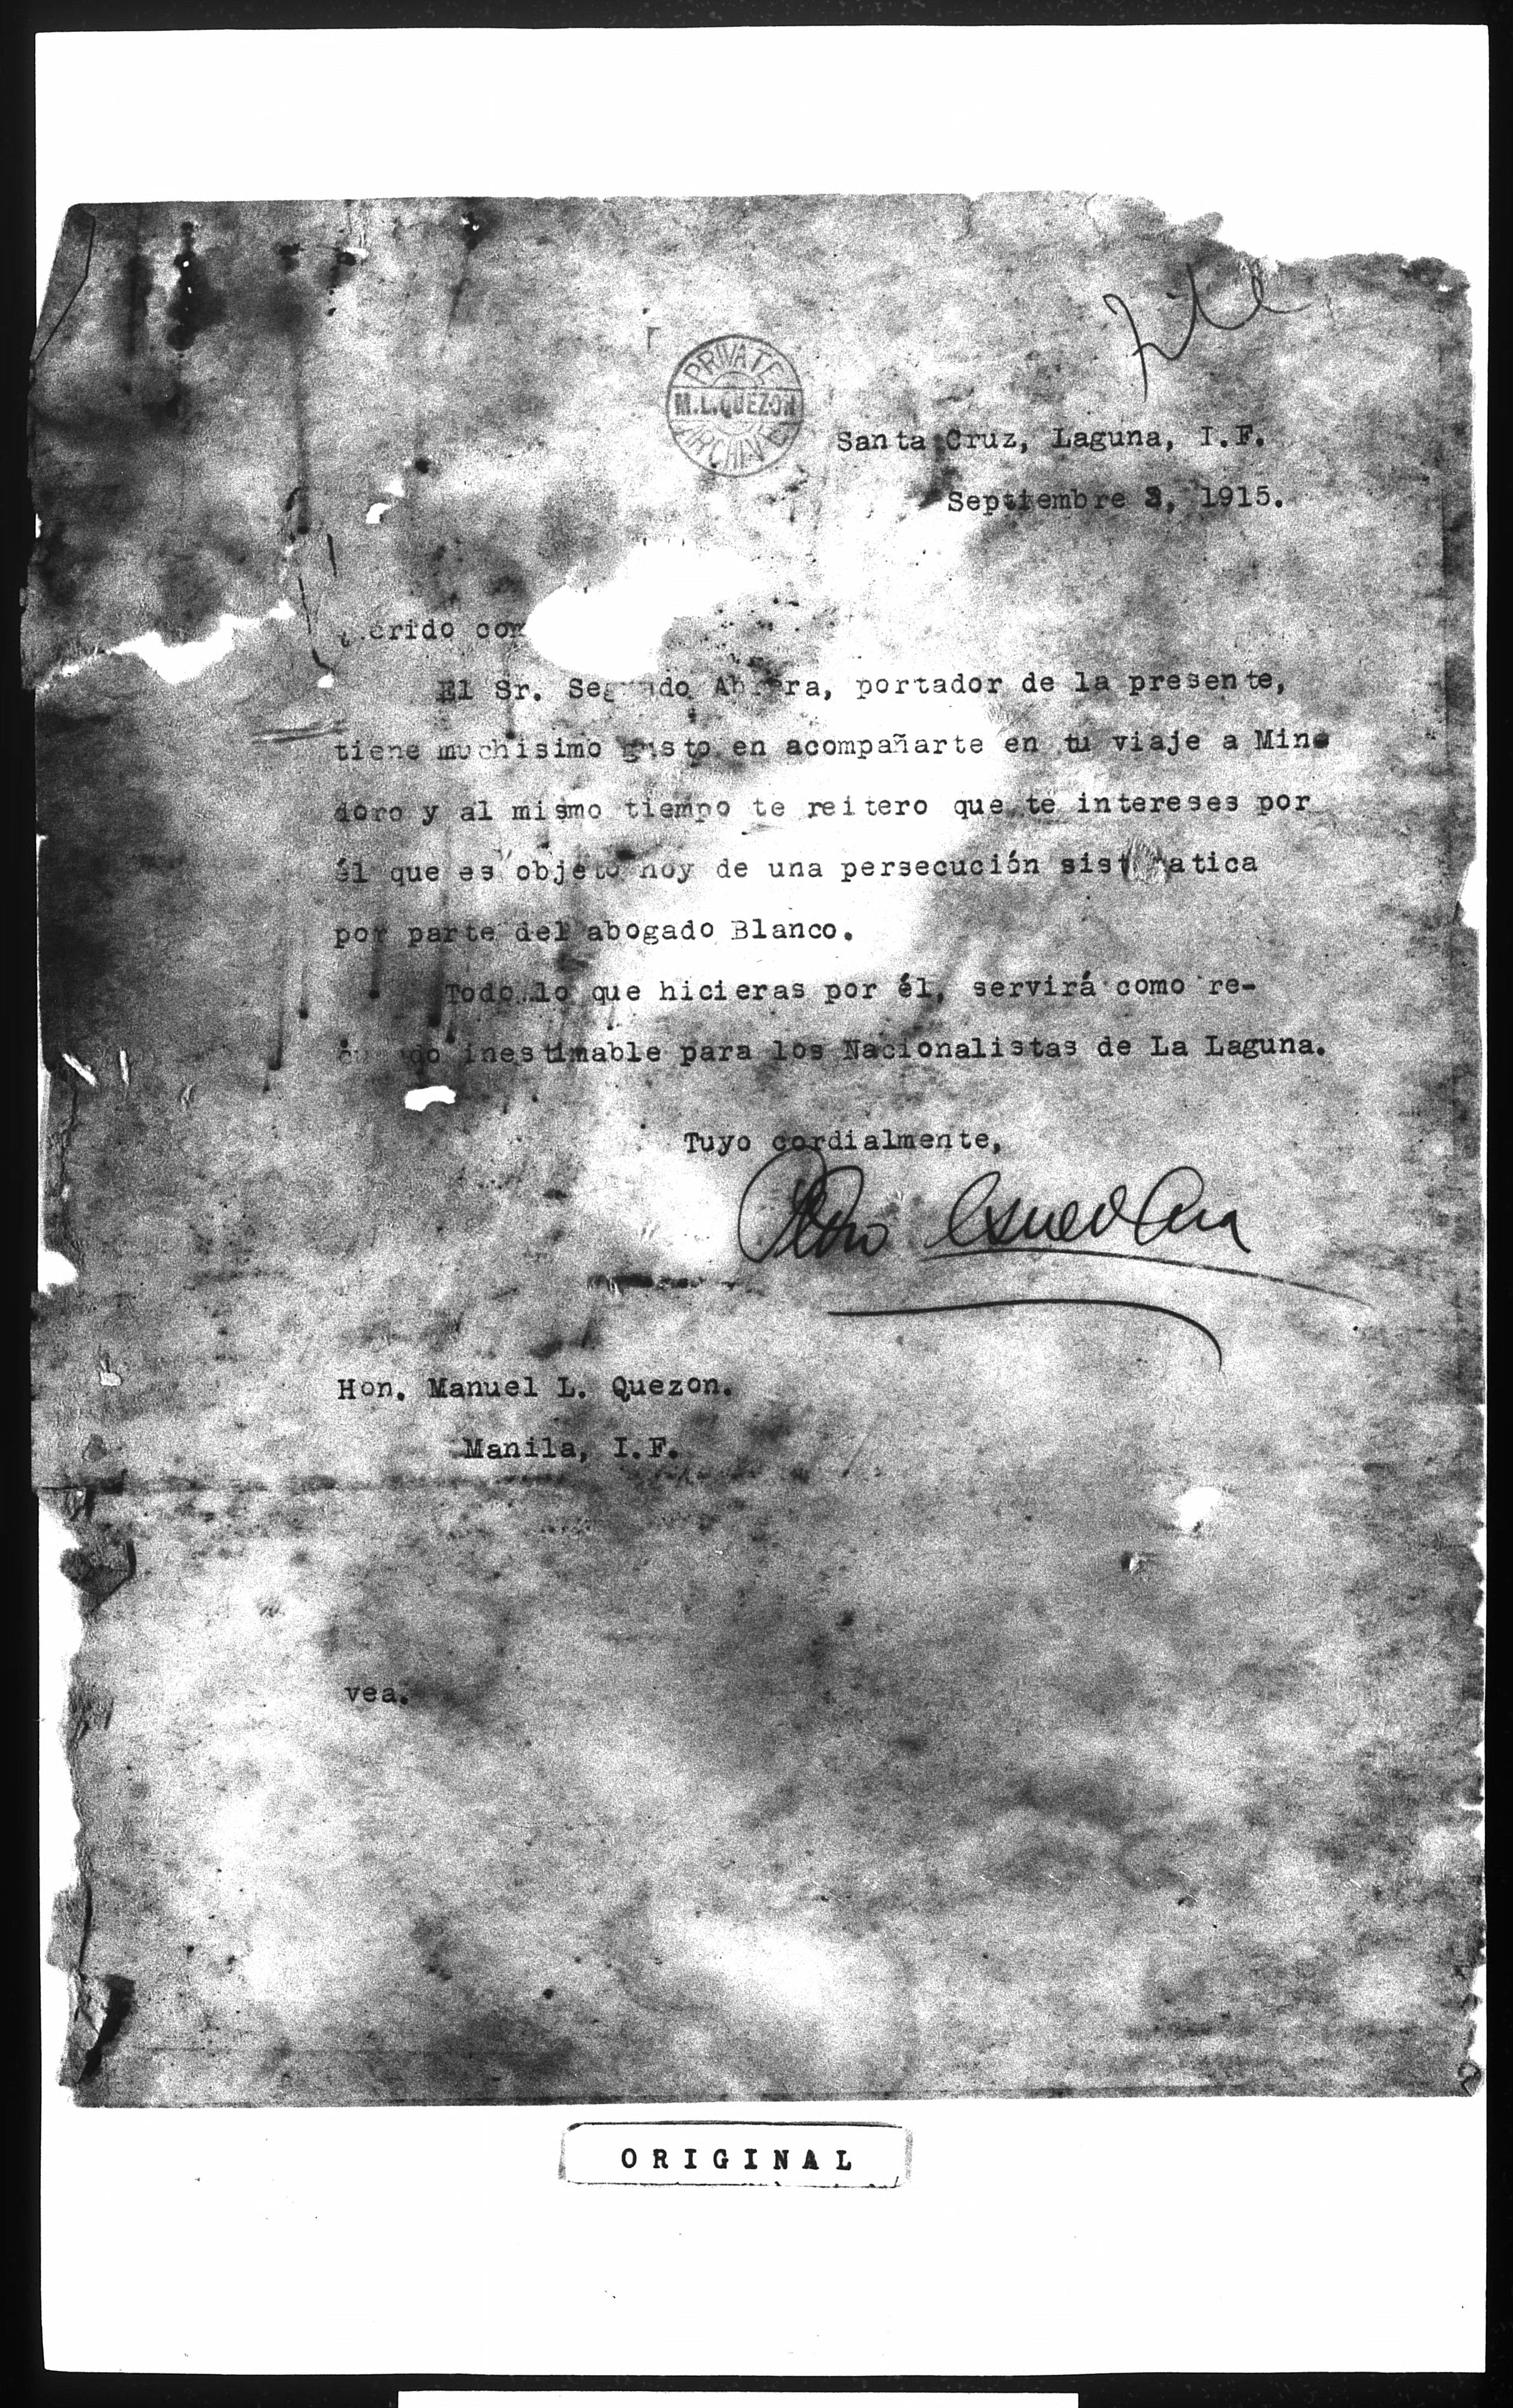 File
PRIVATE
M.L.QUEZON
ARCHIVE
Santa Cruz, Laguna, I.F.
Septiembre 3, 1915.
El Sr. portador de la presente,
tiene muchisimo gusto en acompañarte en tu viaje a Min
doro y al mismo tiempo te reitero que te intereses por
él que es objeto hoy de una persecución
por parte del abogado Blanco.
Todo lo que hicieras por él, servirá como re-
inestimable para los Nacionalistas de La Laguna.
Tuyo cordialmente,
Hon. Manuel L. Quezon.
Manila, I.F.
vea.
ORIGINAL